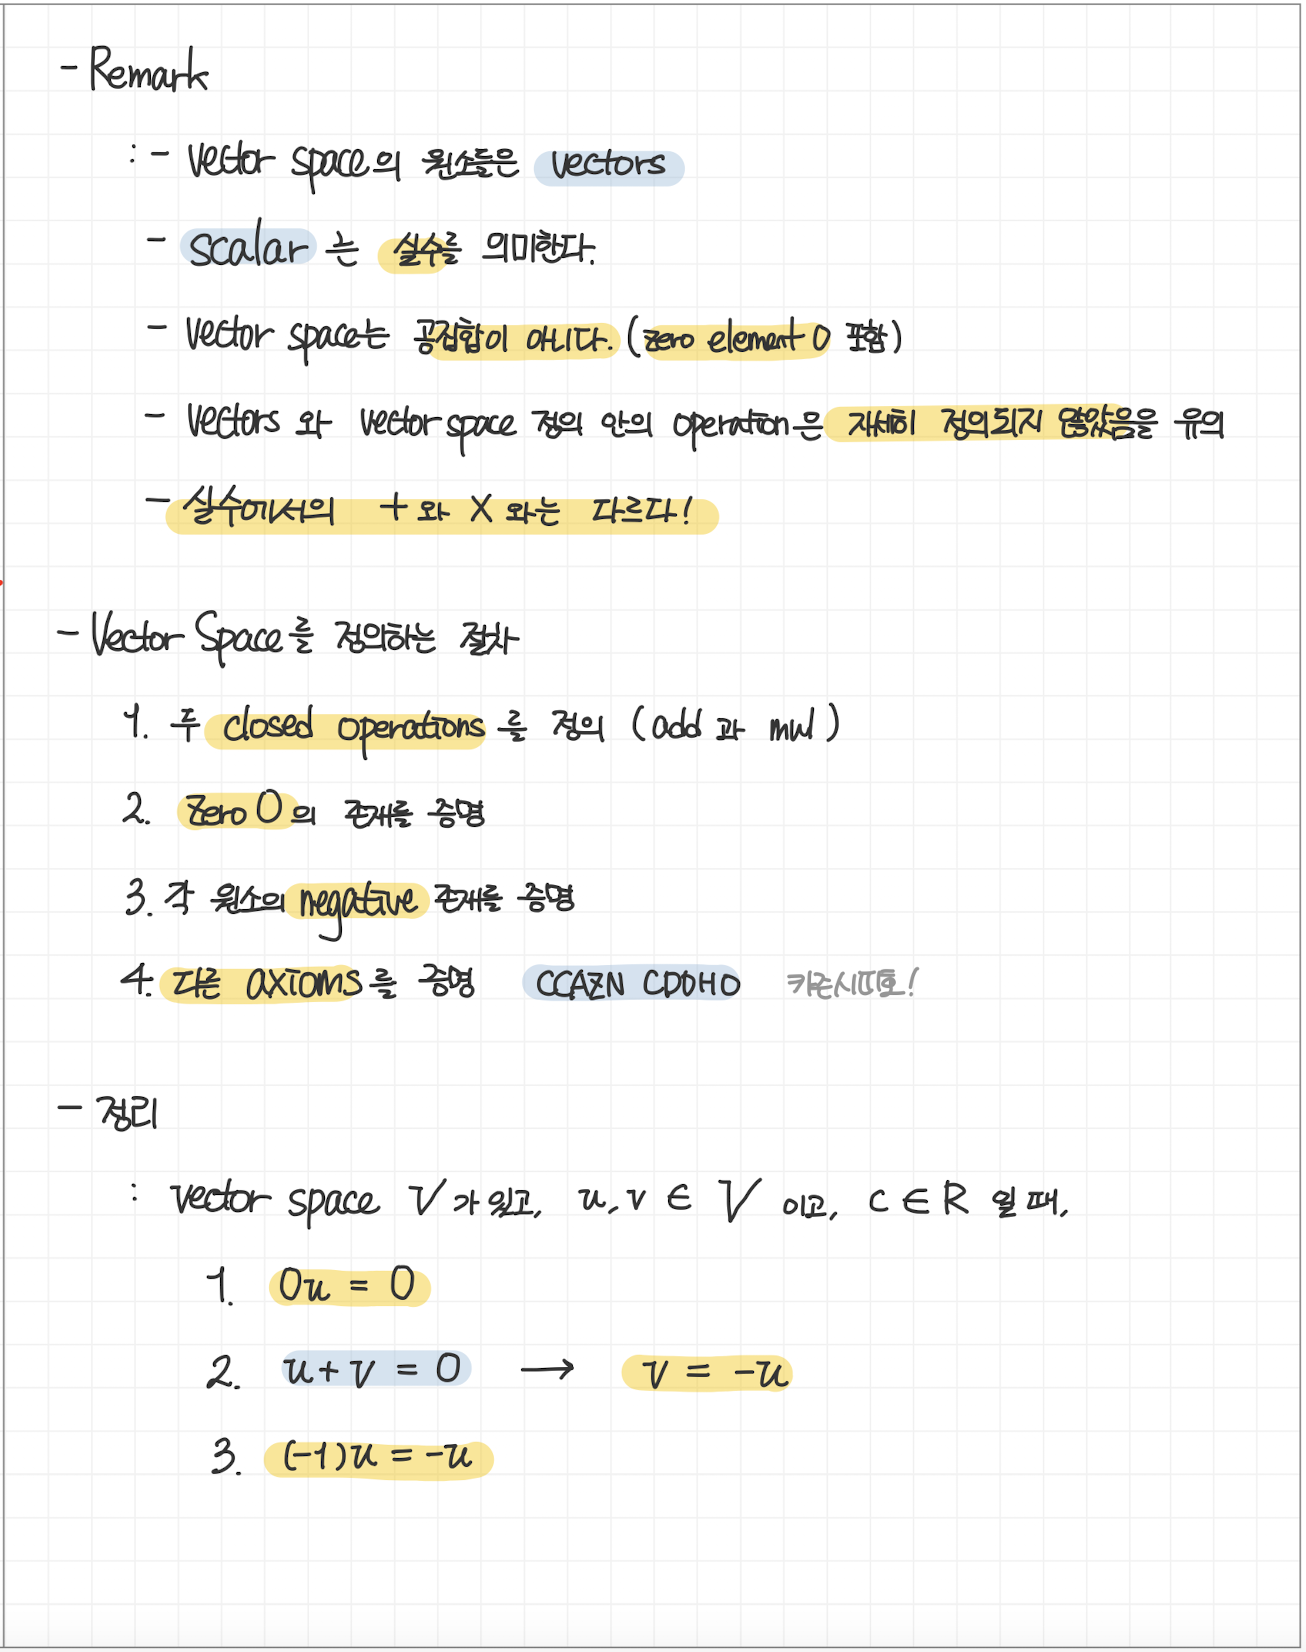 - Remark
: - vector space의 원소들은 vectors
- scalar 는 실수를 의미한다.
- vector space는 공집합이 아니다. (zero element 0 포함)
- vectors 와 vector space 정의 안의 operation은 자세히 정의되지 않았음을 유의
- 실수에서의 + 와 X 와는 다르다!
- Vector Space를 정의하는 절차
1. 두 closed operations 를 정의 (add 과 mul)
2. Zero 0의 존재를 증명
3. 각 원소의 negative 존재를 증명
4. 다른 axioms를 증명 CCAZN CDDHO
- 정리
: vector space V가 있고, u, v ∈ V 이고, c ∈ R 일 때,
1. 0u = 0
2. u + v = 0 → v = -u
3. (-1)u = -u